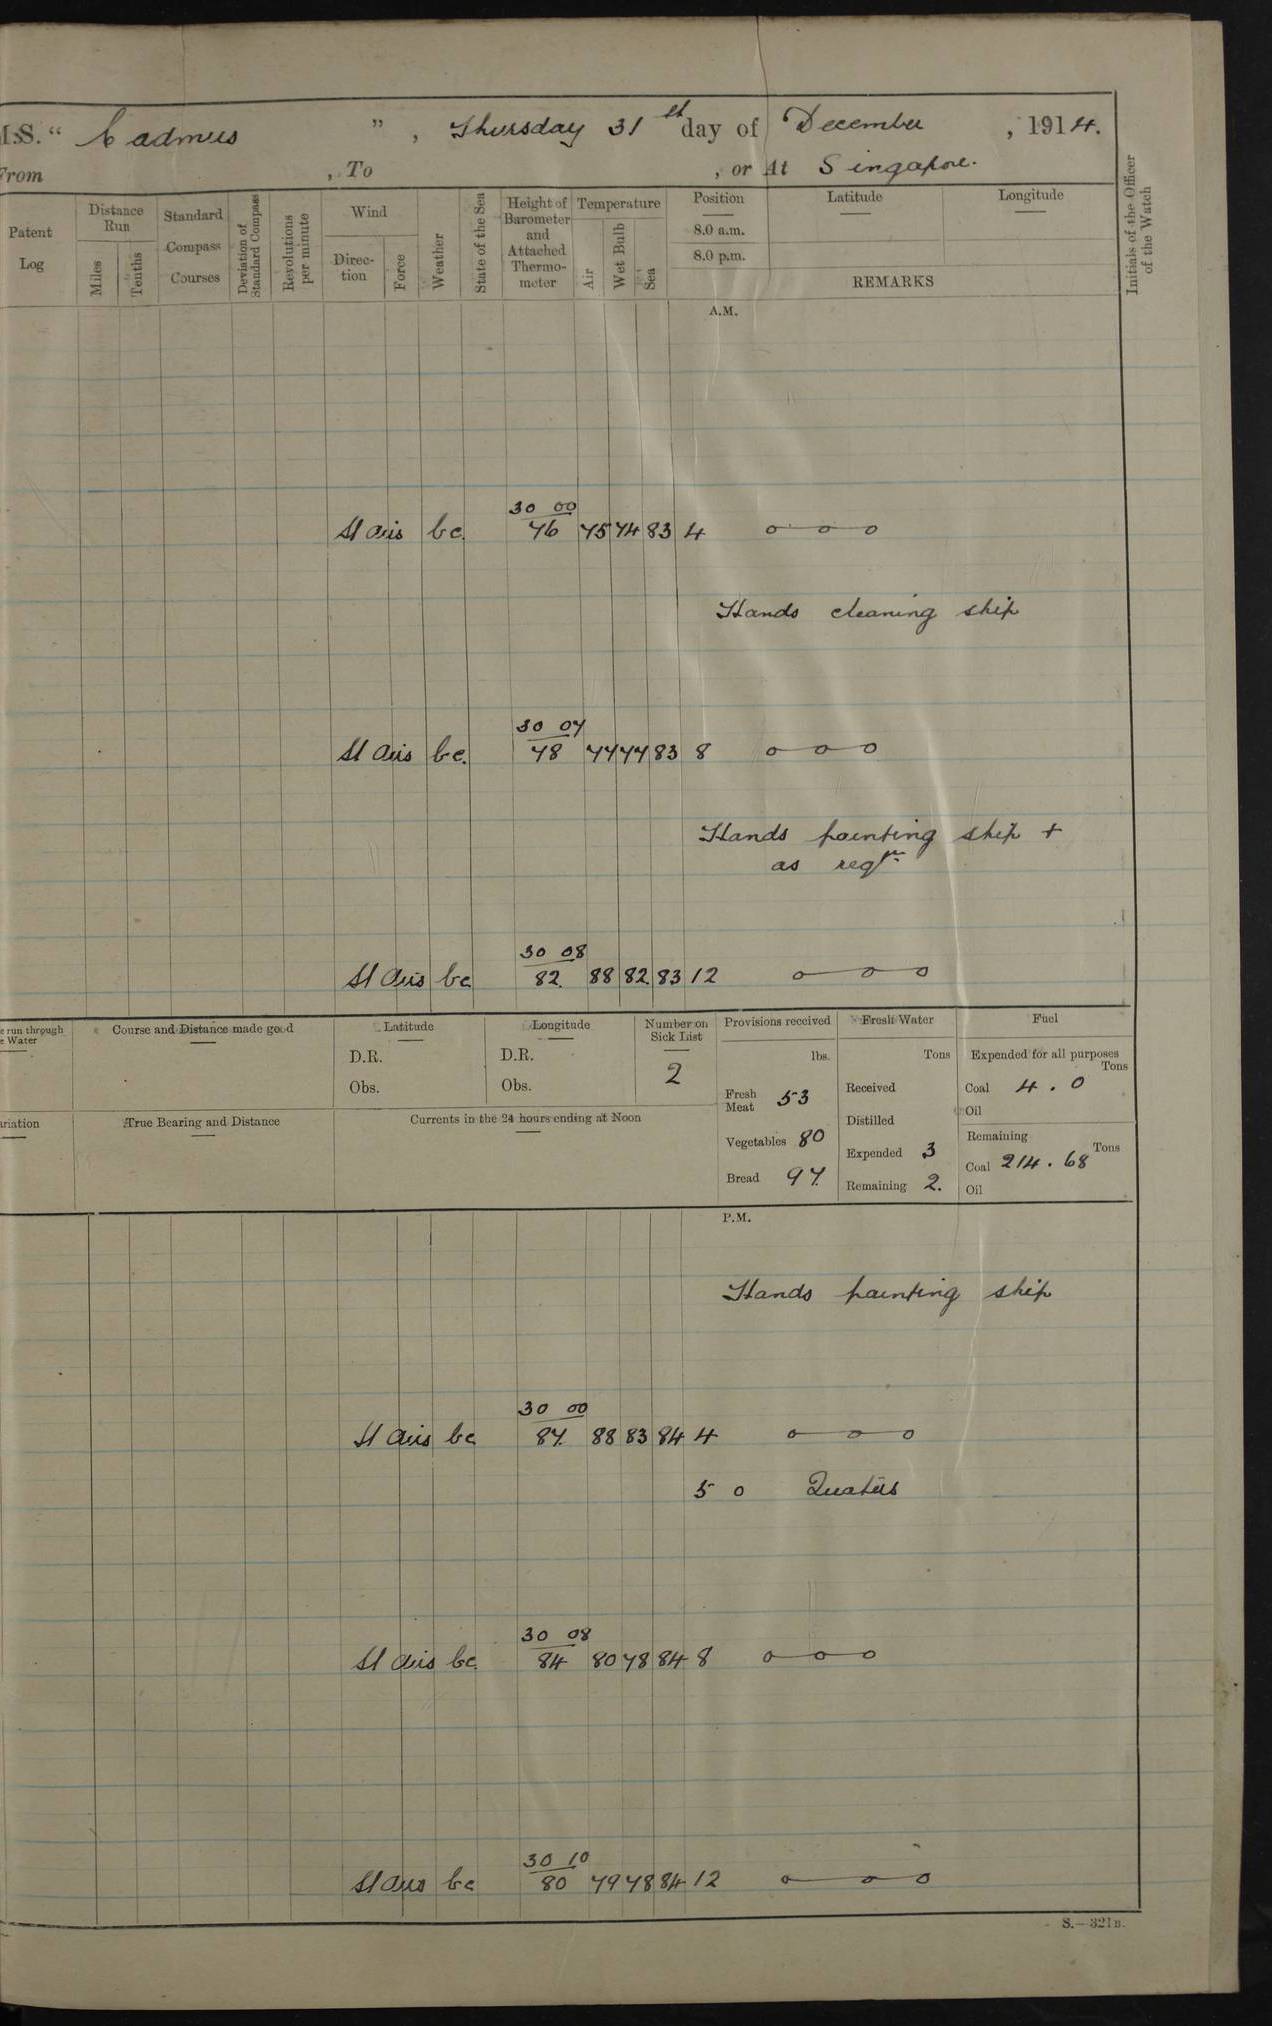 M.S. " Cadmus ", Thursday 31st day of December, 1914.
From , To , or At Singapore.
Patent Log
Distance Run
Miles
Tenths
Standard Compass Courses
Deviation of Standard Compass
Revolutions per minute
Wind
Direction
Force
Weather
State of the Sea
Height of Barometer and Attached Thermometer
Temperature
Air
Wet Bulb
Sea
Position
8.0 a.m.
8.0 p.m.
Latitude
Longitude
REMARKS
Initials of the Officer of the Watch
A.M.
30 00
Lt airs bc. 76 75 74 83 4 o—o—o
Hands cleaning ship
30 07
Lt airs bc. 78 77 77 83 8 o—o—o
Hands painting ship +
as reqr.
30 08
Lt airs bc 82. 88 82 83 12 o—o—o
e run through
e Water
Course and Distance made good
Latitude
D.R.
Obs.
Longitude
D.R.
Obs.
Number on Sick List
2
Provisions received
lbs.
Fresh Meat 53
Vegetables 80
Bread 97.
Fresh Water
Tons
Received
Distilled
Expended 3
Remaining 2.
Fuel
Expended for all purposes
Tons
Coal 4.0
Oil
Remaining
Tons
Coal 214.68
Oil
ariation
True Bearing and Distance
Currents in the 24 hours ending at Noon
P.M.
Hands painting ship
30 00
Lt airs bc 87. 88 83 84 4 o—o—o
5 0 Quarters
30 08
Lt airs bc. 84 80 78 84 8 o—o—o
30 10
Lt airs bc 80 79 78 84 12 o—o—o
S.—321B.